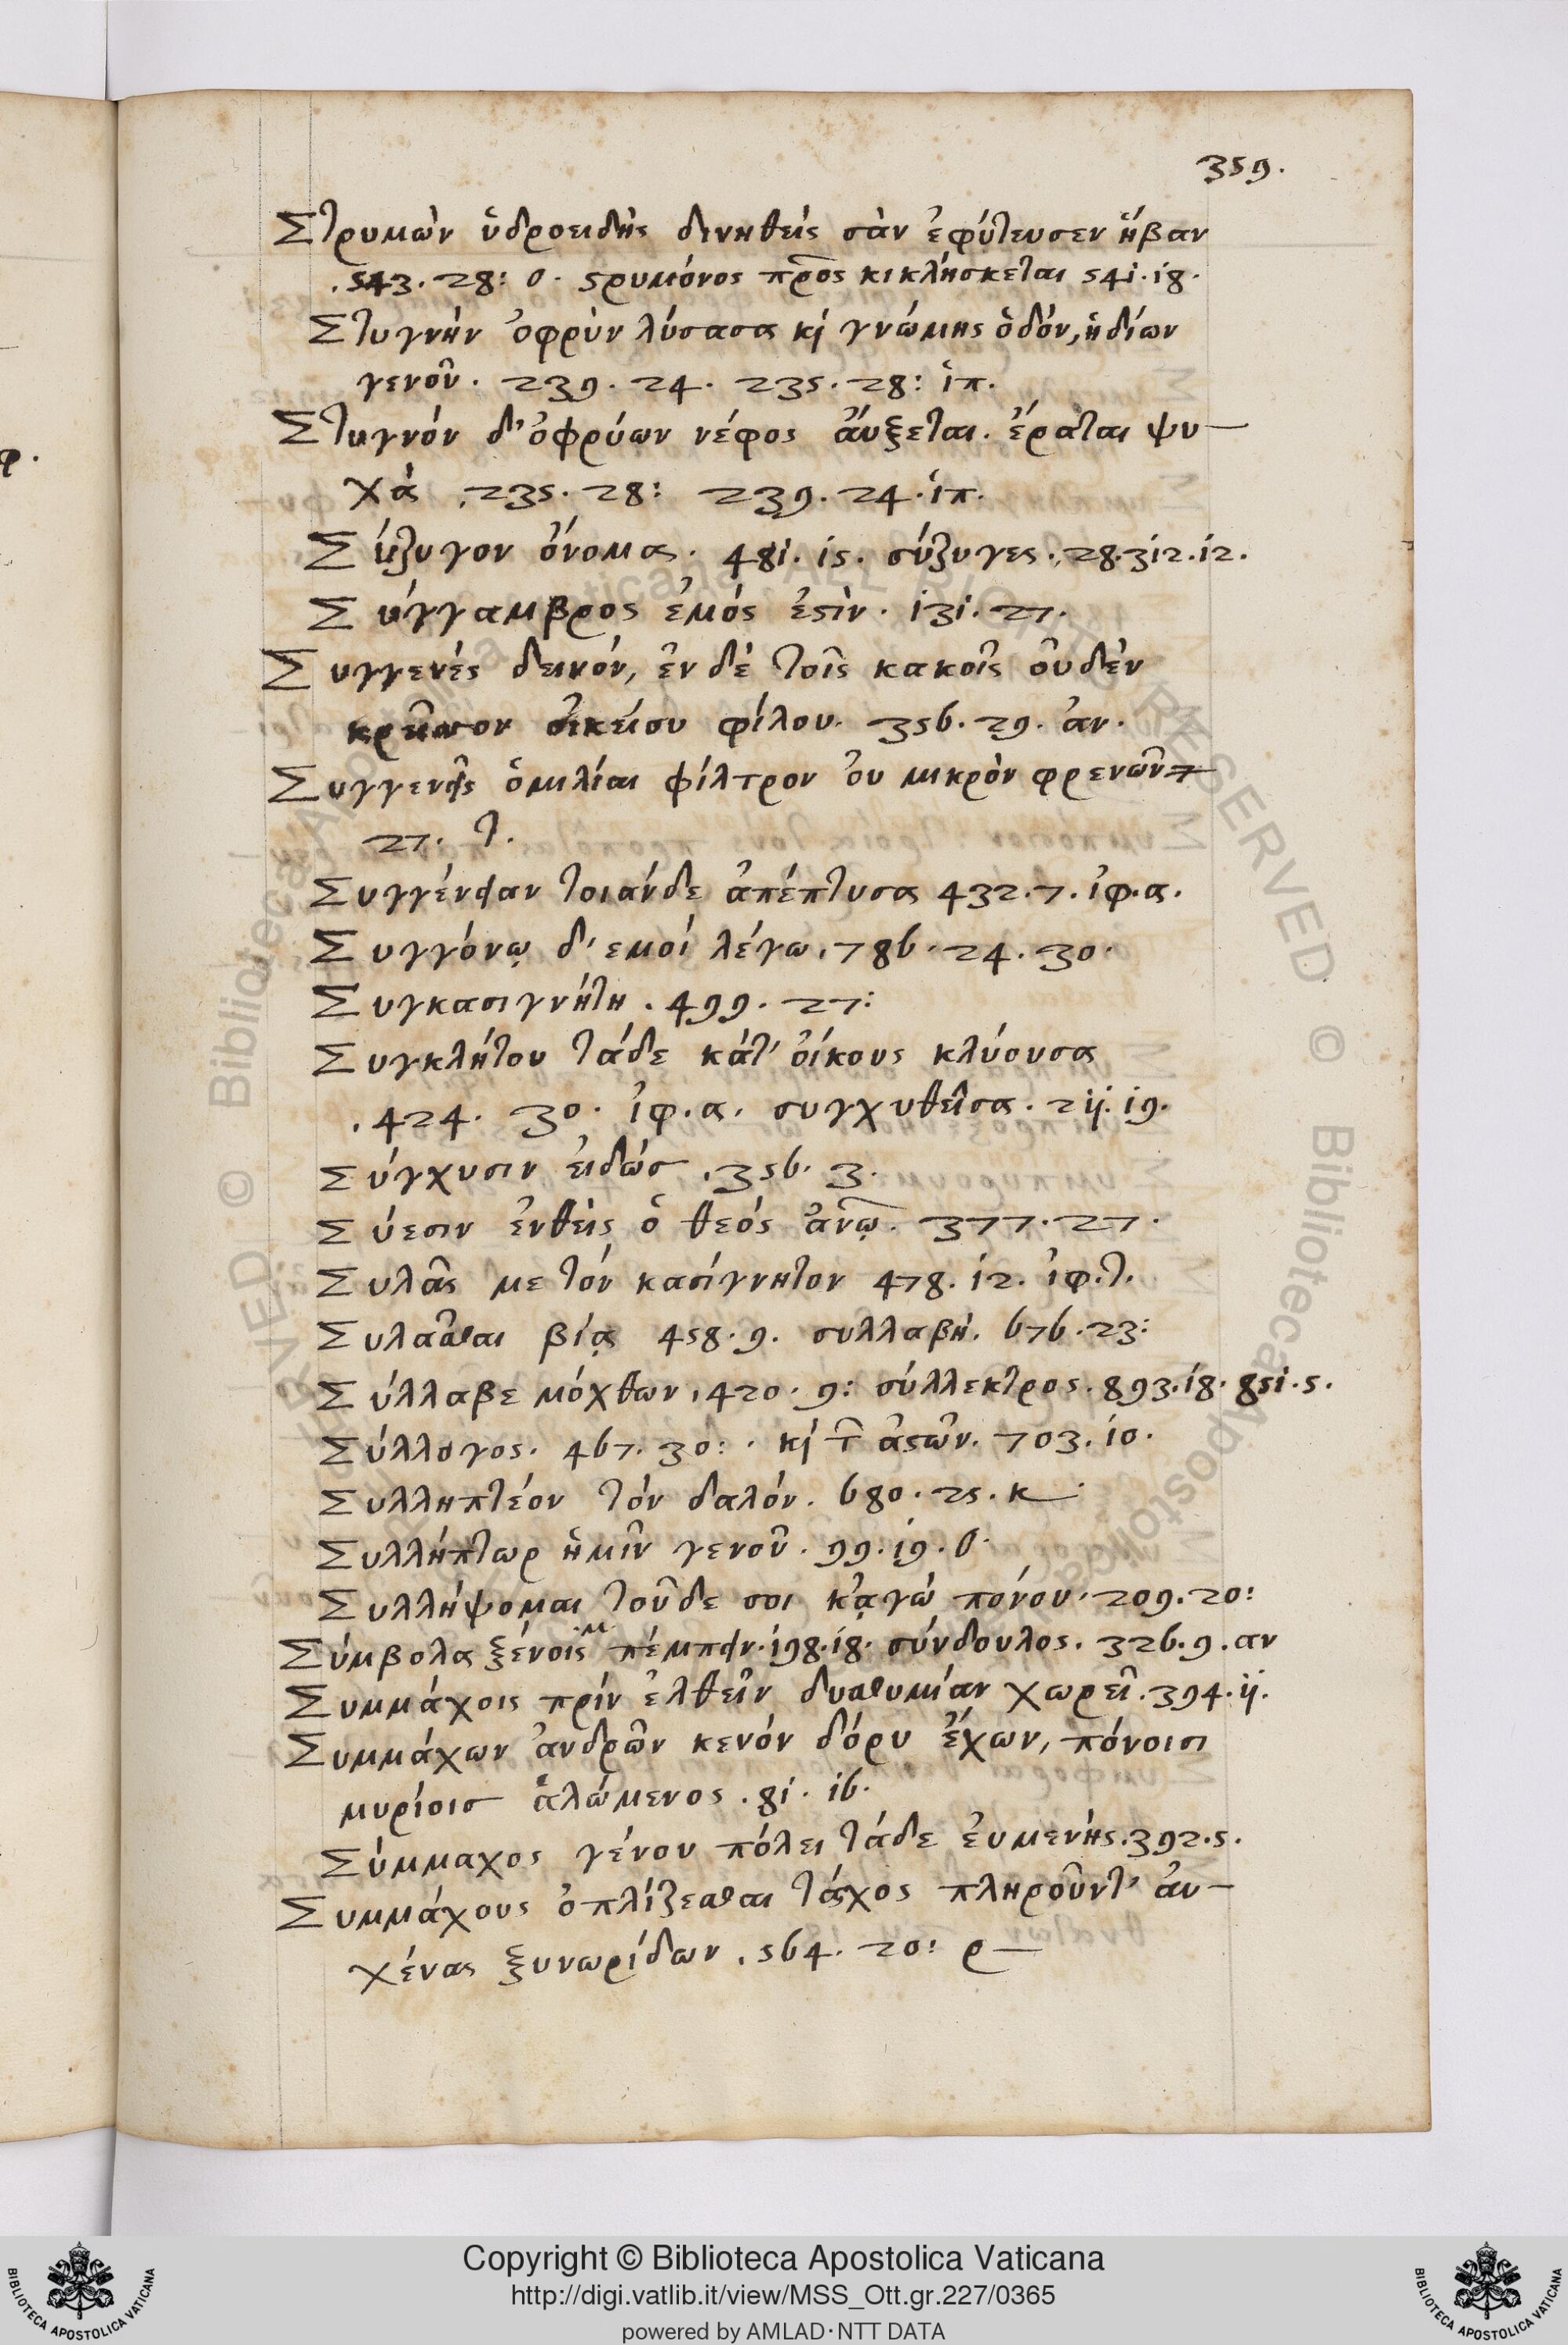 359.
Στρυμὼν ὑδροειδὴς δινηθεὶς σὰν ἐφύτευσεν ἥβαν
.543. 28: ο. ϛρυμόνος πρ͂ος κικλήσκεται 541. 18.
Στυγνὴν ὀφρὺν λύσασα κὶ γνώμης ὁδόν, ἡδίων
γενοῦ. 239. 24. 235. 28: ἱπ.
Στυγνόν δ' ὀφρύων νέφος ἀύξεται. ἔραται ψυ-
χὰ .235. 28: 239. 24. ἱπ.
Σύζυγον ὄνομα. 481. 15. σύζυγες. 28. 312. 12.
Σύγγαμβρος ἐμός ἐϛὶν. 131. 27.
Συγγενές δεινόν, ἐν δὲ τοῖς κακοῖς οὐδὲν
κρεῖσσον οἰκείου φίλου. 356. 29. ἀν.
Συγγενεῖς ὁμιλίαι φίλτρον ὀυ μικρὸν φρενῶν 7
27. τ.
Συγγένειαν τοιάνδε ἀπέπτυσα 432. 7. ἰφ. α.
Συγγόνῳ δ' εμοί λέγω. 786. 24. 30.
Συγκασιγνήτη. 499. 27:
Συγκλήτου τάδε κάτ' ὀίκους κλύουσα
.424. 30. ἰφ. α. συγχυθεῖσα. 211. 19.
Σύγχυσιν ἐιδώσ .356. 3.
Σύεσιν ἐνθεὶς ὁ θεός ἀνῶ̣. 377. 27.
Συλᾶς με τόν κασίγνητον 478. 12. ἰφ. τ.
Συλᾶσθαι βίᾳ 458. 9. συλλαβή. 676. 23:
Σύλλαβε μόχθων, 420. 9: σύλλεκτρος. 893. 18. 851. 5.
Σύλλογος. 467. 30: . κὶ τ͂ ἀϛῶν. 703. 10.
Συλληπτέον τόν δαλόν. 680. 25. κ
Συλλήπτωρ ἡμῖν γενοῦ. 99. 19. ο
Συλλήψομαι τοῦδε σοι κᾀγώ πόνου. 209. 20:
Σύμβολα ξένοις .μ. πέμπειν. 198. 18. σύνδουλος. 326. 9. αν
Συμμάχοις πρίν ἐλθεῖν δυσθυμίαν χωρεῖ. 394. 11.
Συμμάχων ἀνδρῶν κενόν δόρυ ἔχων, πόνοισι
μυρίοισ ἀλώμενος. 81. 16.
Σύμμαχος γένου πόλει τάδε ἐυμενής. 392. 5.
Συμμάχους ὁπλίζεσθαι τάχος πληροῦντ' ἀυ-
χένας ξυνωρίδων. 564. 20: ρ
Copyright © Biblioteca Apostolica Vaticana
http://digi.vatlib.it/view/MSS_Ott.gr.227/0365
powered by AMLAD·NTT DATA